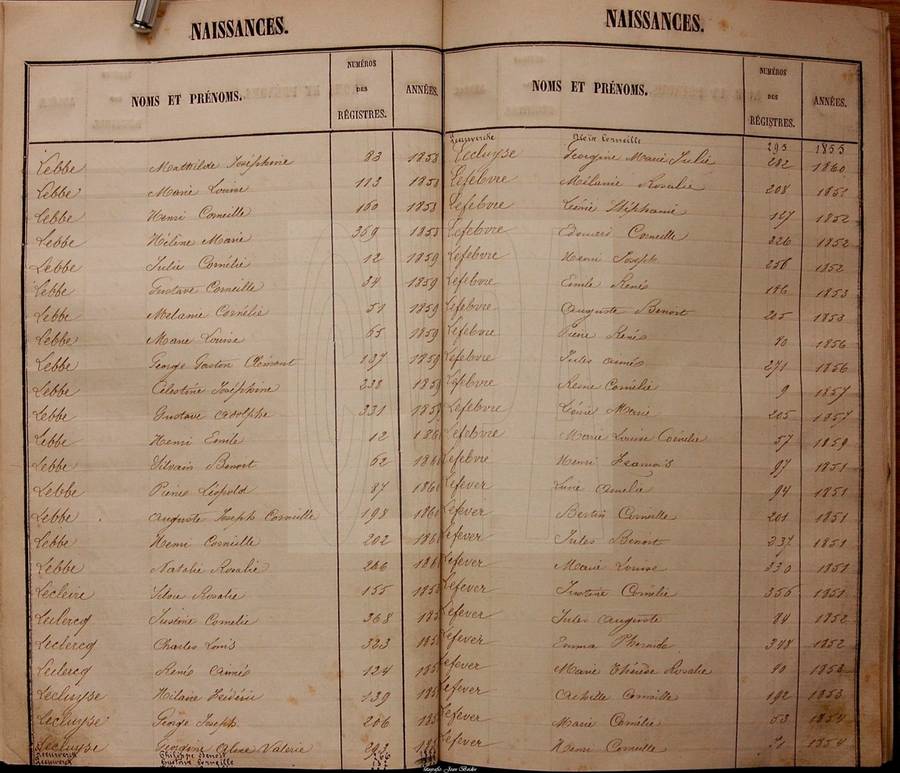 NAISSANCES.
NOMS ET PRÉNOMS.
NUMÉROS
DES
RÉGISTRES.
ANNÉES.
Lebbe Mathilde Joséphine 83 1858
Lebbe Marie Louise 113 1858
Lebbe Henri Corneille 160 1858
Lebbe Hélène Marie 369 1858
Lebbe Julie Cornélie 12 1859
Lebbe Gustave Corneille 34 1859
Lebbe Mélanie Cornélie 51 1859
Lebbe Marie Louise 65 1859
Lebbe George Gaston Clément 197 1859
Lebbe Célestine Joséphine 238 1859
Lebbe Gustave Adolphe 331 1859
Lebbe Henri Emile 12
Lebbe Silvain Benoit 62
Lebbe Pierre Léopold 87
Lebbe Auguste Joseph Corneille 198
Lebbe Henri Corneille 202
Lebbe Natalie Rosalie 266
Leclerc Rosalie 155
Leclercq Justine Cornélie 368
Leclercq Charles Louis 383
Leclercq René Aimé 124
Lecluyse Hilaire 139
Lecluyse George Joseph 206
Lecluyse Georgine Valérie 293
Philippe Benoit
Gustave Corneille
NAISSANCES.
NOMS ET PRÉNOMS.
NUMÉROS
DES
RÉGISTRES.
ANNÉES.
Corneille 293 1855
Lecluyse Georgine Marie Julie 282 1860
Lefebvre Mélanie Rosalie 208 1852
Lefebvre Stéphanie 127 1852
Lefebvre Edouard Corneille 226 1852
Lefebvre Henri Joseph 256 1852
Lefebvre Emile René 196 1853
Lefebvre Auguste Benoit 205 1853
Lefebvre Pierre René 1856
Lefebvre Jules Aimé 271 1856
Lefebvre Cornélie 9 1857
Lefebvre Marie 205 1857
Lefebvre Marie Louise Cornélie 57 1859
Lefebvre Henri François 97 1851
Lefever Amélie 94 1851
Lefever Bertin Corneille 201 1851
Lefever Jules Benoit 237 1851
Lefever Marie Louise 330 1851
Lefever Justine Cornélie 356 1851
Lefever Jules Auguste 84 1852
Lefever Emma 348 1852
Lefever Marie Thérèse Rosalie 1853
Lefever Achille Corneille 192 1853
Lefever Marie Cornélie 53 1854
Lefever Henri Corneille 71 1854